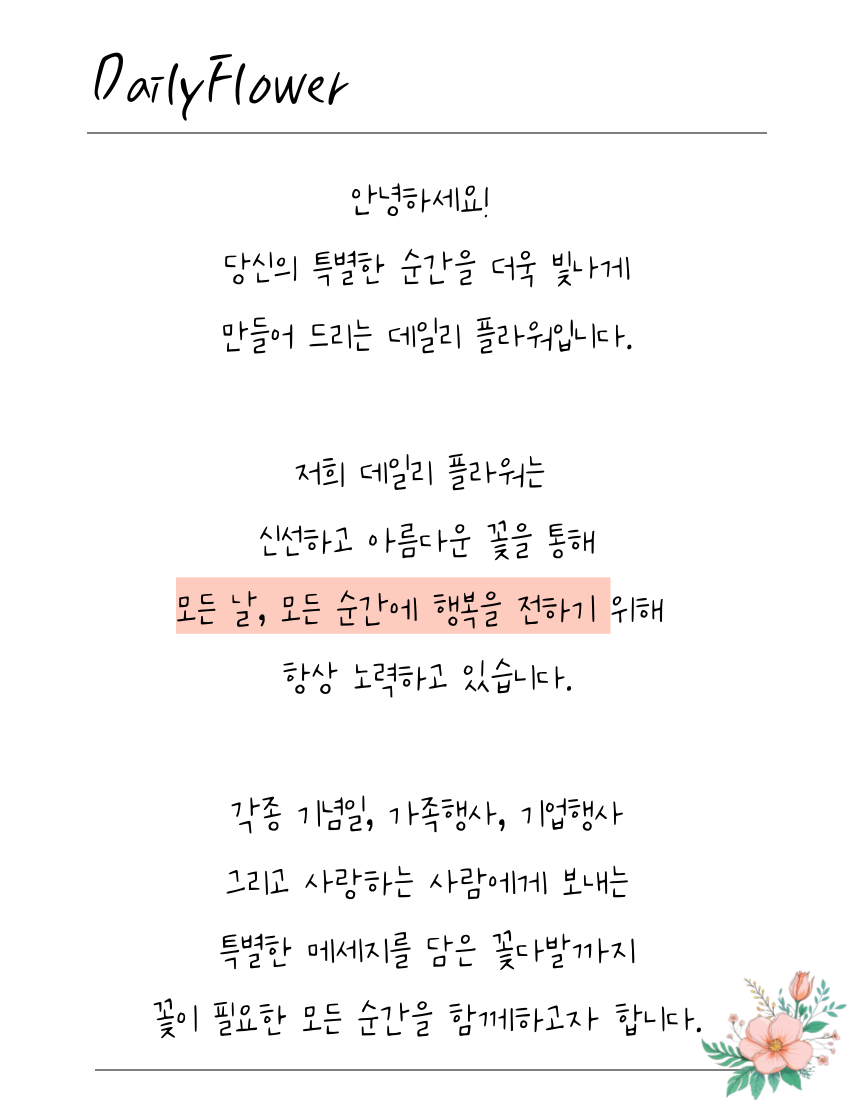 DailyFlower
안녕하세요!
당신의 특별한 순간을 더욱 빛나게
만들어 드리는 데일리 플라워입니다.
저희 데일리 플라워는
신선하고 아름다운 꽃을 통해
모든 날, 모든 순간에 행복을 전하기 위해
항상 노력하고 있습니다.
각종 기념일, 가족행사, 기업행사
그리고 사랑하는 사람에게 보내는
특별한 메세지를 담은 꽃다발까지
꽃이 필요한 모든 순간을 함께하고자 합니다.